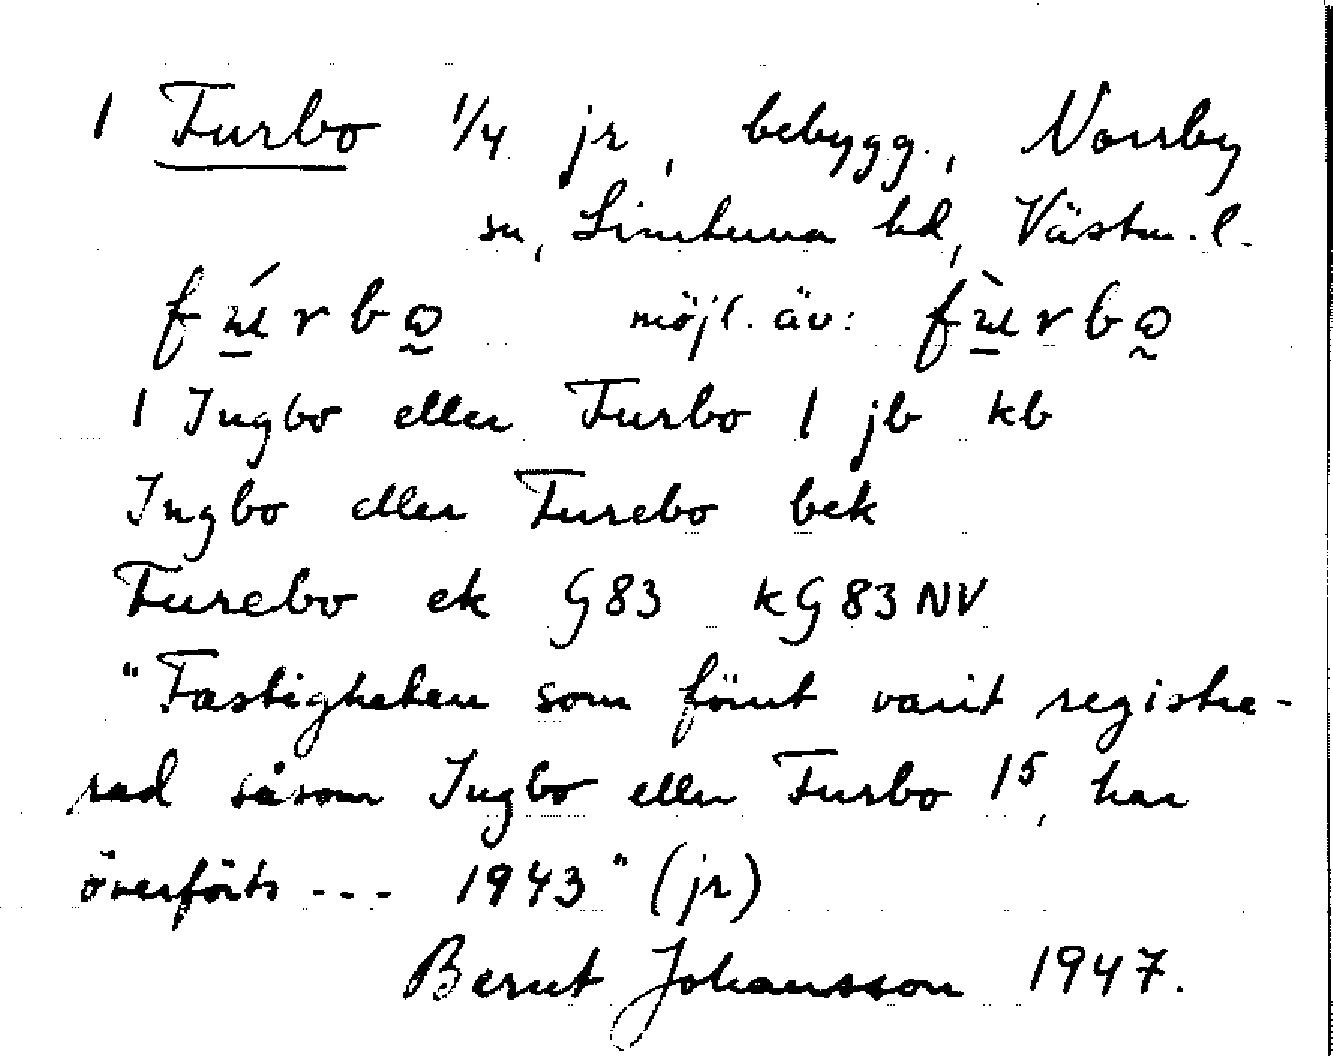 1 Furbo 1/4 jr, bebygg., Norrby
sn, Simtuna hd, Västm. l.
fúrbo möjl. äv: fùrbo
1 Ingbo eller Furbo 1 jb kb
Ingbo eller Furebo bek
Furebo ek G83 kG83NV
"Fastigheten som förut varit registre-
rad såsom Ingbo eller Furbo 1⁵, har
överförts --- 1943" (jr)
Bernt Johansson 1947.